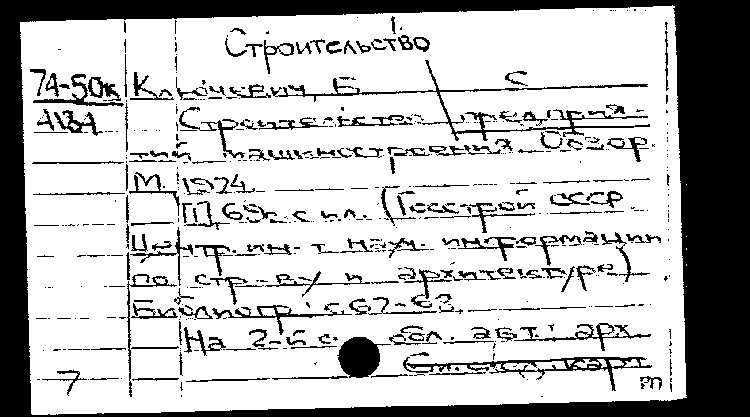 Строительство
74-50к Ключевич, Б С
4134 Строительство предприя-
тий машиностроения. Обзор.
М. 1974.
[1], 69с. с ил. (Госстрой СССР.
Центр. ин-т науч. информации
по стр-ву и архитектуре)
Библиогр: с. 67-68.
На 2-й с. обл. авт.: арх.
См. след. карт
7 РП